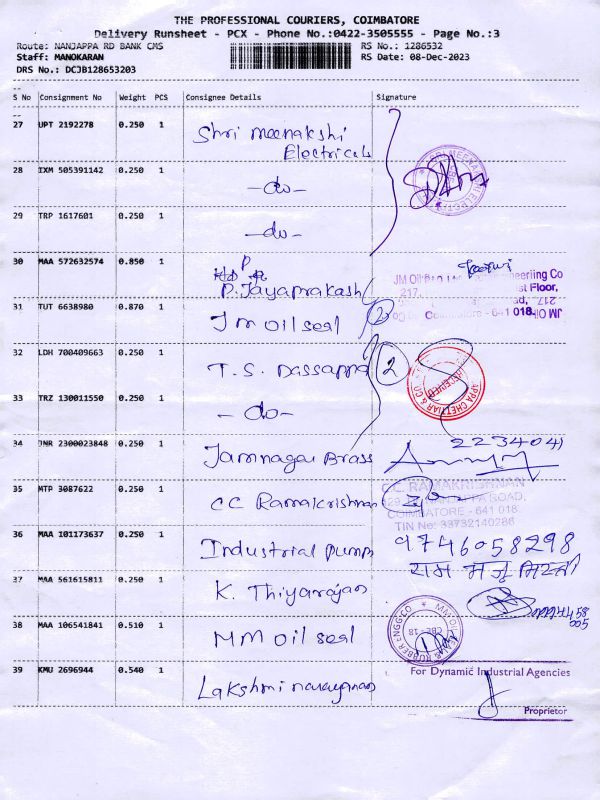 THE PROFESSIONAL COURIERS, COIMBATORE
Delivery Runsheet - PCX - Phone No.:0422-3505555 - Page No.:3
Route: NANJAPPA RD BANK CMS
RS No.: 1286532
Staff: MANOKARAN
RS Date: 08-Dec-2023
DRS No.: DCJB128653203
S No Consignment No Weight PCS Consignee Details Signature
27 UPT 2192278 0.250 1 Shri meenakshi
Electricals
28 IXM 505391142 0.250 1 -do-
29 TRP 1617601 0.250 1 -do-
30 MAA 572632574 0.850 1 P. Jayaprakash
JM Oil
217,
31 TUT 6638980 0.870 1 JM oil seal 2
Coimbatore - 641 018.
32 LDH 700409663 0.250 1 T. S. Dassappa 2
RECEIVED
33 TRZ 130011550 0.250 1 -do-
34 JNR 2300023848 0.250 1 Jamnagar Brass
2234041
35 MTP 3087622 0.250 1 CC Ramakrishnan
C.C. RAMAKRISHNAN
COIMBATORE - 641 018.
TIN No: 33732140286
36 MAA 101173637 0.250 1 Industrial pumps 9746058298
37 MAA 561615811 0.250 1 K. Thiyarajan
38 MAA 106541841 0.510 1 MM oil seal
39 KMU 2696944 0.540 1 Lakshmi narayanan
For Dynamic Industrial Agencies
Proprietor